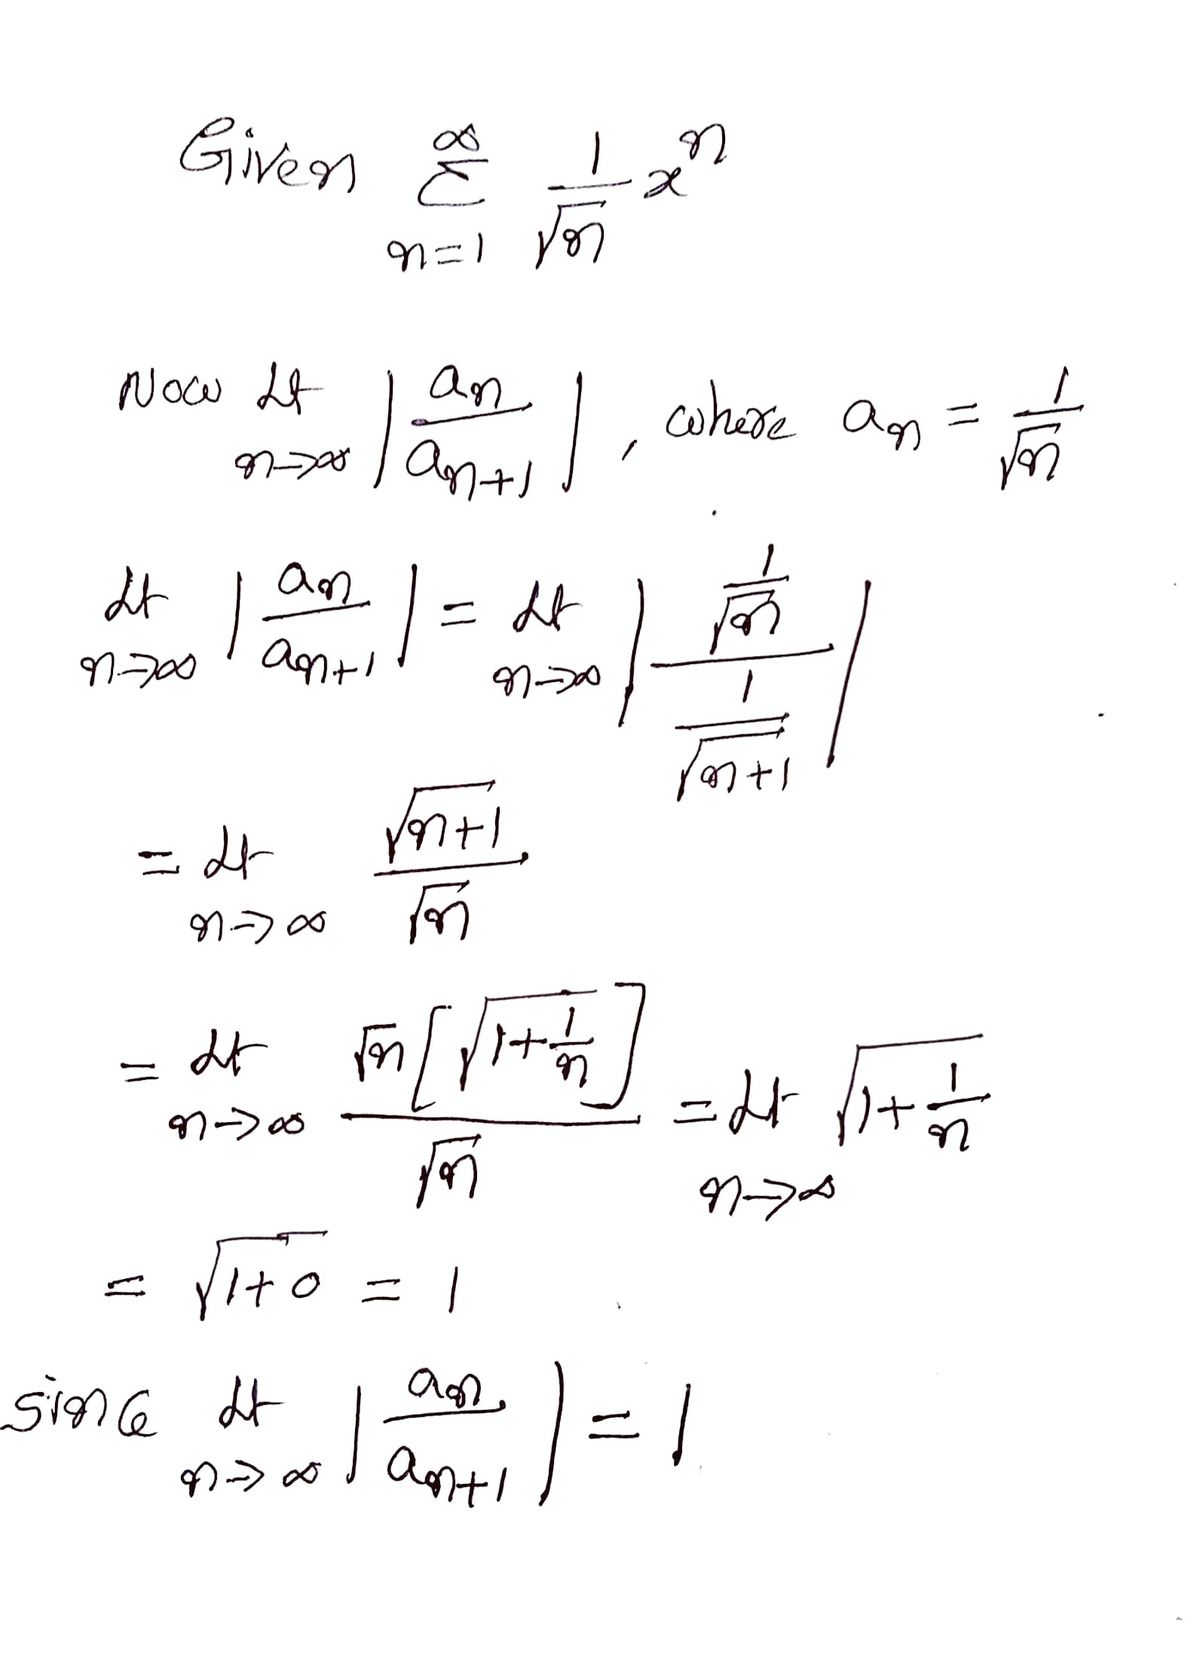 Given ∞∑n=1 1/√n x^n
Now Lt n→∞ |an/an+1|, where an = 1/√n
Lt n→∞ |an/an+1| = Lt n→∞ |(1/√n)/(1/√n+1)|
= Lt n→∞ √n+1/√n
= Lt n→∞ √n[√1+1/n]/√n = Lt n→∞ √1+1/n
= √1+0 = 1
Since Lt n→∞ |an/an+1| = 1